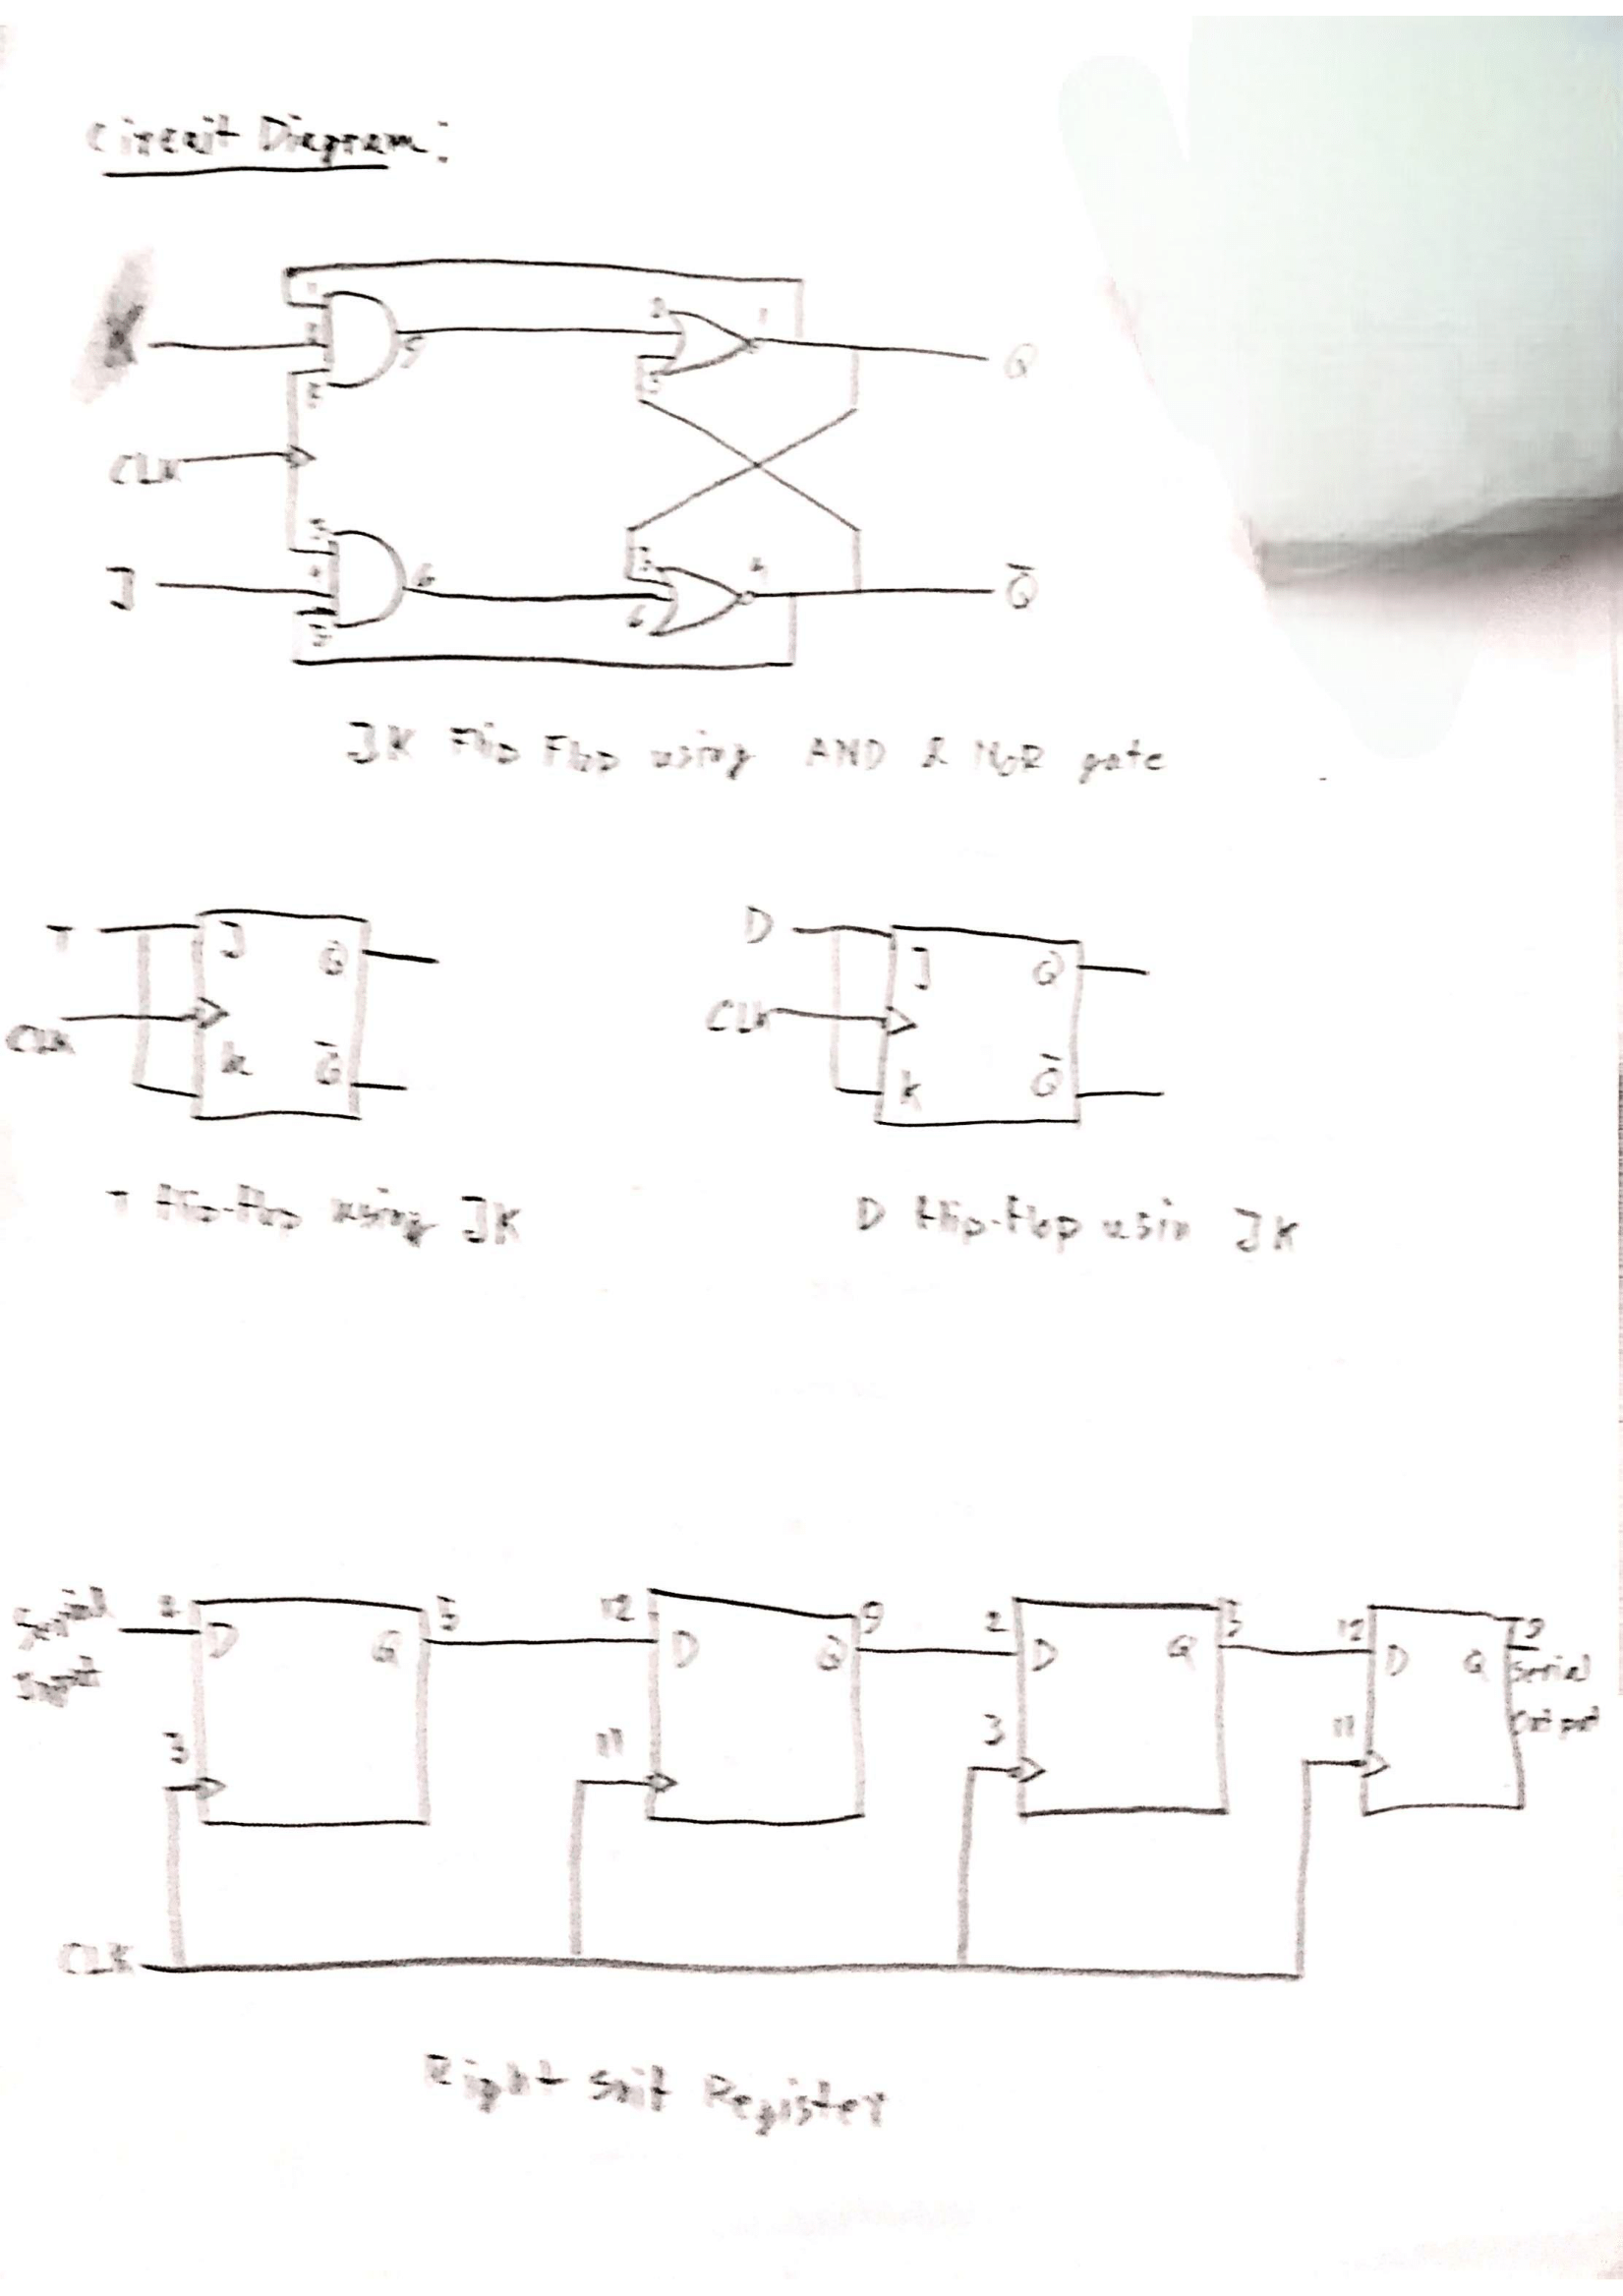 Circuit Diagram:
K
1
2
5
2
3
1
Q
CLK
J
3
4
6
6
4
Q̅
JK Flip Flop using AND & NOR gate
T
CLK
J
Q
K
Q̅
D
CLK
J
Q
K
Q̅
T flip-flop using JK
D flip-flop usin JK
Serial
Input
2
D
Q
5
12
D
Q
9
2
D
Q
5
12
D
Q
9
Serial
Output
3
11
3
11
CLK
Right Shit Register